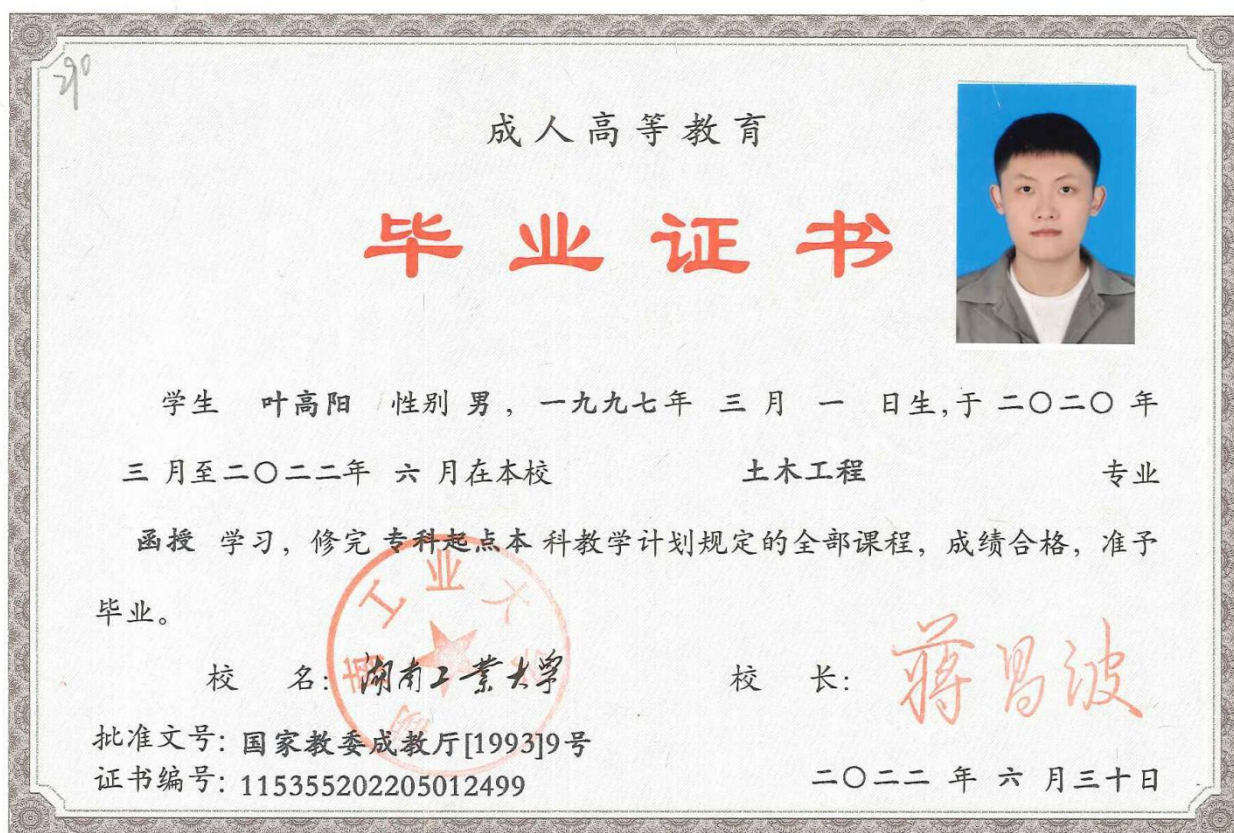 290
成人高等教育
毕业证书
学生 叶高阳 性别 男，一九九七年 三 月 一 日生,于 二〇二〇 年
三 月至二〇二二年 六 月在本校 土木工程 专业
函授 学习，修完 专科起点本 科教学计划规定的全部课程，成绩合格，准予
毕业。
湖南工业大学
校 名：湖南工業大學
校 长：蒋昌波
批准文号：国家教委成教厅[1993]9号
证书编号：115355202205012499
二〇二二 年 六 月三十日